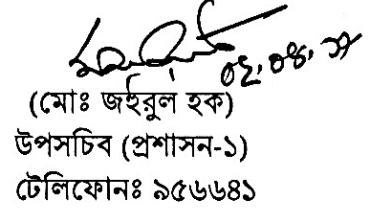 ০২.০৪.১৭
(মোঃ জহুরুল হক)
উপসচিব (প্রশাসন-১)
টেলিফোনঃ ৯৫৬৬৬৪১